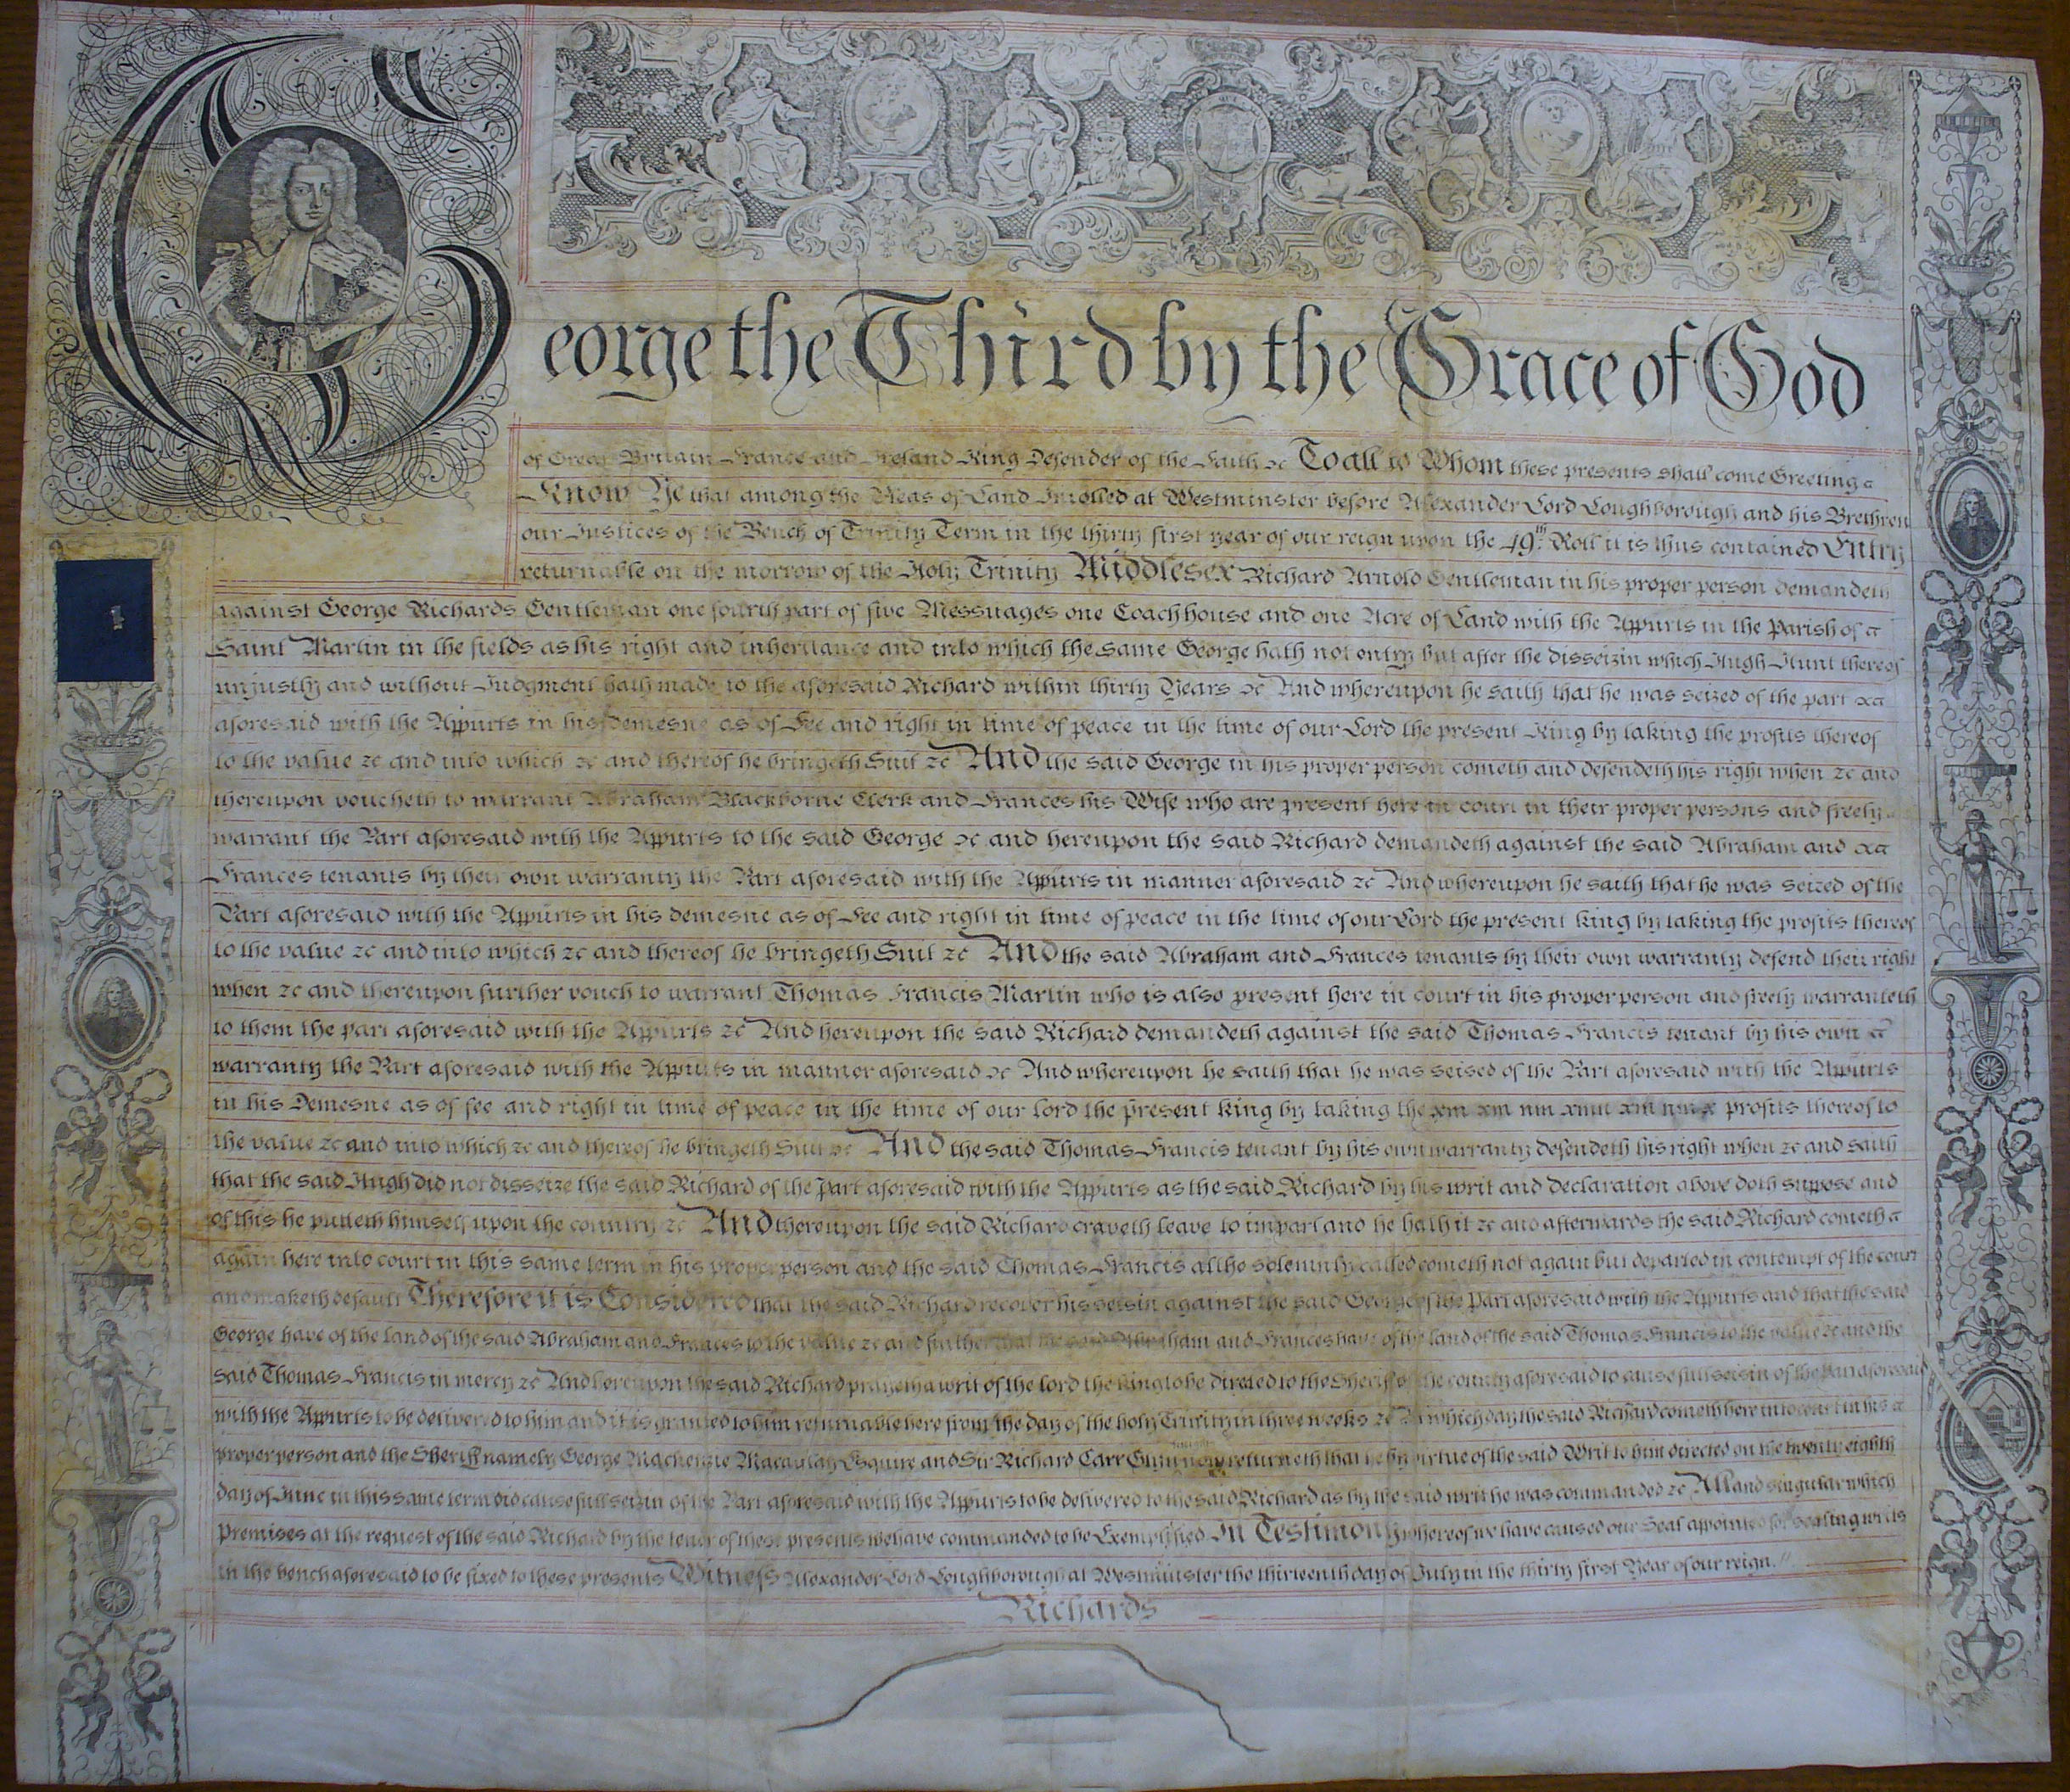 George the Third by the Grace of God
of Great Britain France and Ireland King Defender of the Faith &c To all to Whom these presents shall come Greeting
Know Ye that among the Pleas of Land Inrolled at Westminster before Alexander Lord Loughborough and his Brethren
our Justices of the Bench of Trinity Term in the thirty first year of our reign upon the 49th Roll it is thus contained Entry
returnable on the morrow of the Holy Trinity Middlesex Richard Arnold Gentleman in his proper person demandeth
against George Richards Gentleman one fourth part of five Messuages one Coach house and one Acre of Land with the Appurts in the parish of
Saint Martin in the fields as his right and inheritance and into which the same George hath not entry but after the disseizin which Hugh Hunt thereof
unjustly and without Judgment hath made to the aforesaid Richard within thirty Years &c And whereupon he saith that he was seized of the part
aforesaid with the Appurts in his demesne as of Fee and right in time of peace in the time of our Lord the present King by taking the profits thereof
to the value &c and into which &c and thereof he bringeth Suit &c And the said George in his proper person cometh and defendeth his right when &c and
thereupon voucheth to warrant Abraham Blackborne Clerk and Frances his Wife who are present here in court in their proper persons and freely
warrant the Part aforesaid with the Appurts to the said George &c and hereupon the said Richard demandeth against the said Abraham and
Frances tenants by their own warranty the Part aforesaid with the Appurts in manner aforesaid &c And whereupon he saith that he was seized of the
Part aforesaid with the Appurts in his demesne as of Fee and right in time of peace in the time of our Lord the present king by taking the profits thereof
to the value &c and into which &c and thereof he bringeth Suit &c And the said Abraham and Frances tenants by their own warranty defend their right
when &c and thereupon further vouch to warrant Thomas Francis Martin who is also present here in court in his proper person and freely warranteth
to them the part aforesaid with the Appurts &c And hereupon the said Richard demandeth against the said Thomas Francis tenant by his own
warranty the Part aforesaid with the Appurts in manner aforesaid &c And whereupon he saith that he was seised of the Part aforesaid with the Appurts
in his Demesne as of fee and right in time of peace in the time of our lord the present king by taking the profits thereof to
the value &c and into which &c and thereof he bringeth Suit &c And the said Thomas Francis tenant by his own warranty defendeth his right when &c and saith
that the said Hugh did not disseize the said Richard of the Part aforesaid with the Appurts as the said Richard by his writ and declaration above doth suppose and
of this he putteth himself upon the country &c And thereupon the said Richard craveth leave to imparl and he hath it &c and afterwards the said Richard cometh
again here into court in this same term in his proper person and the said Thomas Francis altho solemnly called cometh not again but departed in contempt of the court
and maketh default Therefore it is Considered that the said Richard recover his seisin against the said George of the Part aforesaid with the Appurts and that the said
George have of the land of the said Abraham and Frances to the value &c and further that the said Abraham and Frances have of the land of the said Thomas Francis to the value &c and the
said Thomas Francis in mercy &c And hereupon the said Richard prayeth a writ of the lord the king to be directed to the Sheriff of the county aforesaid to cause full seisin of the Part aforesaid
with the Appurts to be delivered to him and it is granted to him returnable here from the day of the holy Trinity in three weeks &c At which day the said Richard cometh here into court in his
proper person and the Sheriff namely George Mackenzie Macaulay Esquire and Sir Richard Carr Glynn now returneth that he by virtue of the said Writ to him directed on the twenty eighth
day of June in this same term did cause full seizin of the Part aforesaid with the Appurts to be delivered to the said Richard as by the said writ he was commanded &c All and singular which
Premises at the request of the said Richard by the tenor of these presents we have commanded to be Exemplified In Testimony whereof we have caused our Seal appointed for sealing writs
in the bench aforesaid to be fixed to these presents Witness Alexander Lord Loughborough at Westminster the thirteenth day of July in the thirty first Year of our reign.
Richards